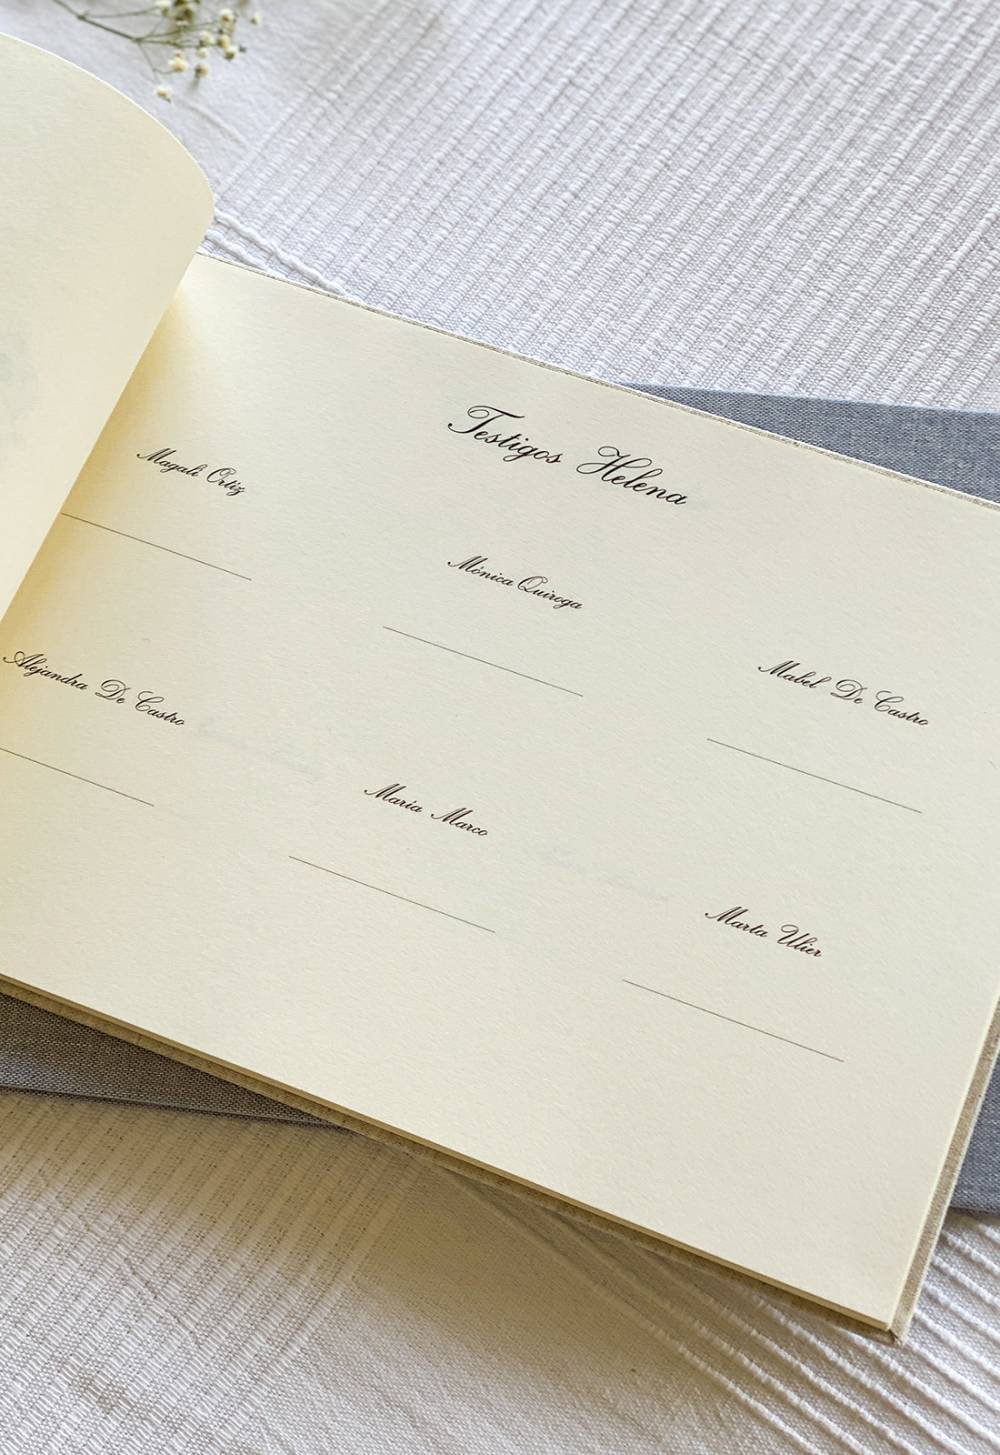 Testigos Helena
Magali Ortiz
Mónica Quiroga
Mabel De Castro
Alejandra De Castro
Maria Marco
Marta Ulier